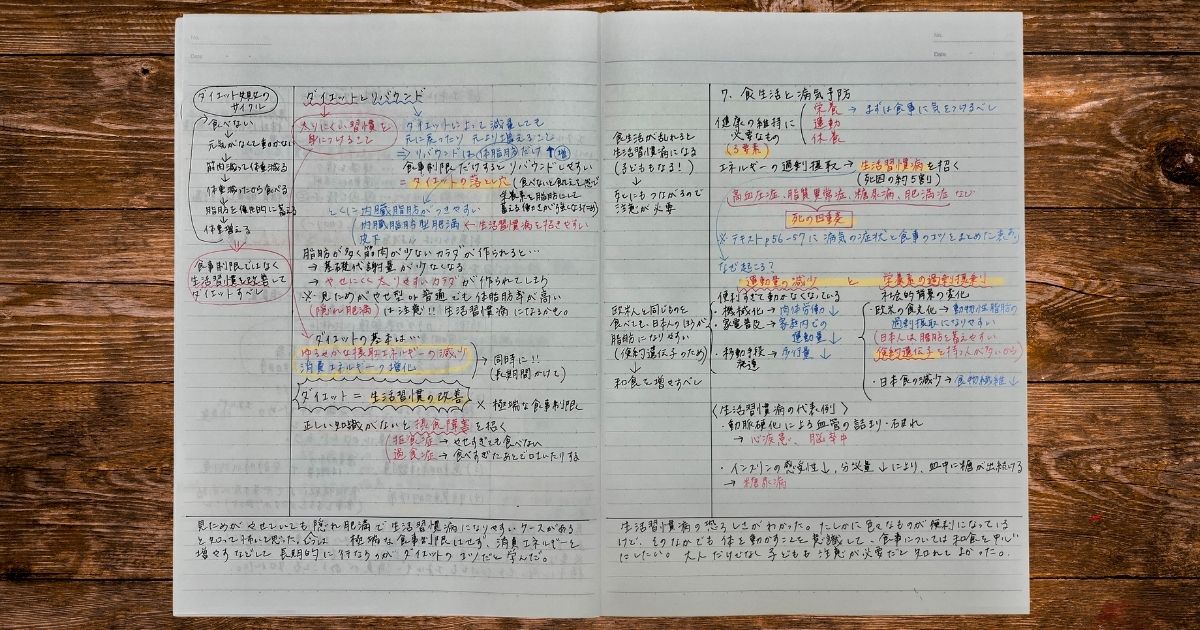 No.
Date
ダイエット失敗の
サイクル
食べない
↓
元気がなくて動かない
↓
筋肉減って体重減る
↓
体重減ったから食べる
↓
脂肪を優先的に蓄える
↓
体重増える
食事制限ではなく
生活習慣を改善して
ダイエットすべし
ダイエットとリバウンド
太りにくい習慣を
身につけること
ダイエットによって減量しても
元に戻ったり元より増えること
⇒ リバウンドは体脂肪だけ↑(増)
食事制限だけするとリバウンドしやすい
= ダイエットの落とし穴 (食べないと飢えを感じ
栄養素を脂肪にして
蓄える働きが強くなるため)
とくに内臓脂肪がつきやすい
内臓脂肪型肥満 ← 生活習慣病を招きやすい
皮下
脂肪が多く筋肉が少ないカラダが作られると…
→ 基礎代謝量が少なくなる
→ やせにくく太りやすいカラダが作られてしまう
※ 見ためがやせ型or普通でも体脂肪率が高い
(隠れ肥満)は注意!! 生活習慣病になるかも。
ダイエットの基本は…
ゆるやかな摂取エネルギーの減少
消費エネルギーの増化
同時に!!
(長期間かけて)
ダイエット = 生活習慣の改善
× 極端な食事制限
正しい知識がないと摂食障害を招く
拒食症 → やせすぎても食べない
過食症 → 食べすぎたあと口はいたりする
見ためがやせていても隠れ肥満で生活習慣病になりやすいケースがある
と知って怖いと思った。今は極端な食事制限はせず、消費エネルギーを
増やすなどして長期的に行なうのがダイエットのコツだと学んだ。
No.
Date
食生活が乱れると
生活習慣病になる
(子どももなる!)
↓
死にもつながるので
注意が必要
欧米人と同じものを
食べても、日本人のほうが
脂肪になりやすい
(倹約遺伝子のため)
↓
和食を増すべし
7. 食生活と病気予防
健康の維持に
必要なもの
(3要素)
栄養 → まずは食事に気をつけるべし
運動
休養
エネルギーの過剰摂取 → 生活習慣病を招く
(死因の約5割)
(高血圧症、脂質異常症、糖尿病、肥満症 など
死の四重奏
※ テキストp56-57に病気の症状と食事のコツをまとめた表あり
なぜ起こる?
運動量の減少 と 栄養素の過剰摂取
便利すぎて動かなくなっている
・機械化 → 肉体労働↓
・家電普及 → 家庭内での
運動量↓
・移動手段 → 歩行量↓
発達
社会的背景の変化
・欧米の食文化 → 動物性脂肪の
過剰摂取になりやすい
(日本人は脂肪を蓄えやすい
倹約遺伝子を持つ人が多いから)
・日本食の減少 → 食物繊維↓
〈生活習慣病の代表例〉
・動脈硬化による血管の詰まり・石まれ
→ 心疾患、脳卒中
・インスリンの感受性↓、分泌量↓により、血中に糖が出続ける
→ 糖尿病
生活習慣病の恐ろしさがわかった。たしかに色々なものが便利になっている
けど、そのなかでも体を動かすことを意識して、食事については和食を中心
にしたい。大人だけでなく子どもも注意が必要だと知れてよかった。